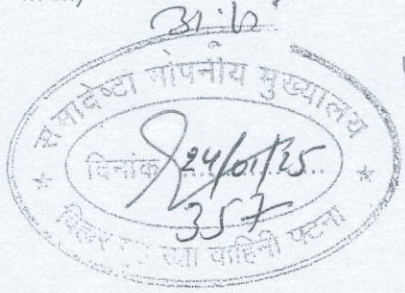 समादेष्टा गोपनीय मुख्यालय
दिनांक 24/01/25
357
बिहार गृह रक्षा वाहिनी पटना